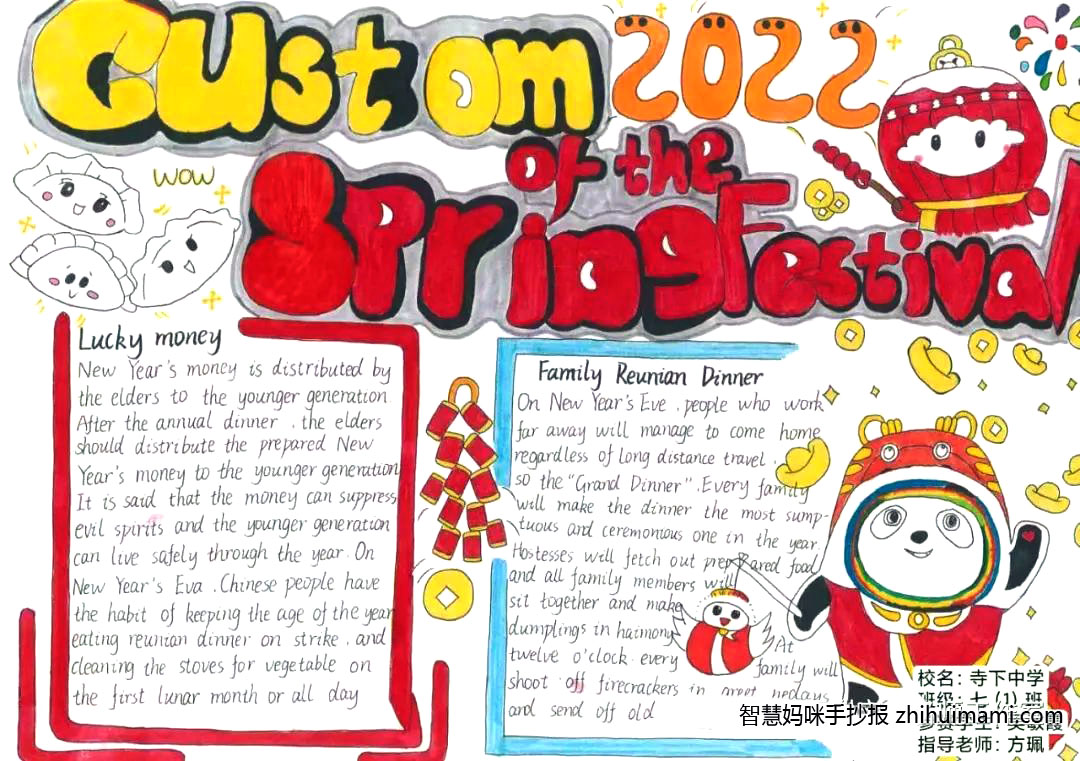 Custom 2022
of the
Spring Festival
WOW
Lucky money
New Year's money is distributed by
the elders to the younger generation
After the annual dinner , the elders
should distribute the prepared New
Year's money to the younger generation
It is said that the money can suppress
evil spirits and the younger generation
can live safely through the year. On
New Year's Eva . Chinese people have
the habit of keeping the age of the year
eating reunian dinner on strike , and
cleaning the stoves for vegetable on
the first lunar month or all day
Family Reunian Dinner
On New Year's Eve , people who work
far away will manage to come home
regardless of long distance travel .
so the "Grand Dinner" . Every family
will make the dinner the most sump-
tuous and ceremonious one in the year.
Hostesses will fetch out prepared food
and all family members will
sit together and make
dumplings in harmony At
twelve o'clock every family will
shoot off firecrackers in
and send off old
校名：寺下中学
班级：七（1）班
指导老师：方珮
智慧妈咪手抄报 zhihuimami.com